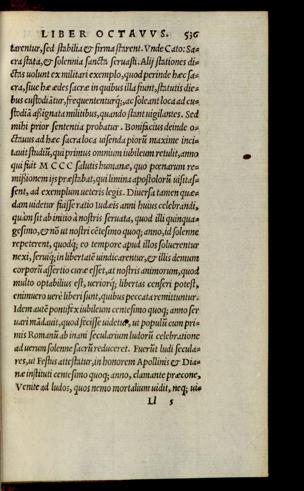 LIBER OCTAVVS. 536
tarentur, sed stabilia & firma starent. Vnde Cato: Sa-
cra stata, & solennia sancta seruasti. Alij stationes di-
ctas uolunt ex militari exemplo, quod perinde hæc sa-
cra, siue hæ ædes sacræ in quibus illa fiunt, statutis die-
bus custodiãtur, frequententurq;, ac soleant loca ad cu-
stodiã assignata militibus, quando stant uigilantes. Sed
mihi prior sententia probatur. Bonifacius deinde o-
ctauus ad hæc sacra loca uisenda piorũ maxime inci-
tauit studiũ, qui primus omnium iubileum retulit, anno
qui fuit M CCC salutis humanæ, quo pœnarum re-
missionem ijs præstabat, qui limina apostolorũ uisitas-
sent, ad exemplum ueteris legis. Diuersa tamen quæ-
dam uidetur fuisse ratio Iudæis anni huius celebrandi,
quàm sit ab initio à nostris seruata, quod illi quinqua-
gesimo, & nõ ut nostri cẽtesimo quoq; anno, id solenne
repeterent, quodq; eo tempore apud illos soluerentur
nexi, seruiq; in libertatẽ uindicarentur, & illis demum
corporũ assertio curæ esset, at nostris animorum, quod
multo optabilius est, ueriorq; libertas censeri potest,
enimuero uerè liberi sunt, quibus peccata remittuntur.
Idem autẽ pontifex iubileum centesimo quoq; anno ser
uari mãdauit, quod fecisse uidetur, ut populũ cum pri-
mis Romanũ ab inani secularium ludorũ celebratione
ad uerum solenne sacrũ reduceret. Fuerũt ludi secula-
res, ut Festus attestatur, in honorem Apollinis & Dia-
næ instituti centesimo quoq; anno, clamante præcone,
Venite ad ludos, quos nemo mortalium uidit, neq; ui-
Ll 5